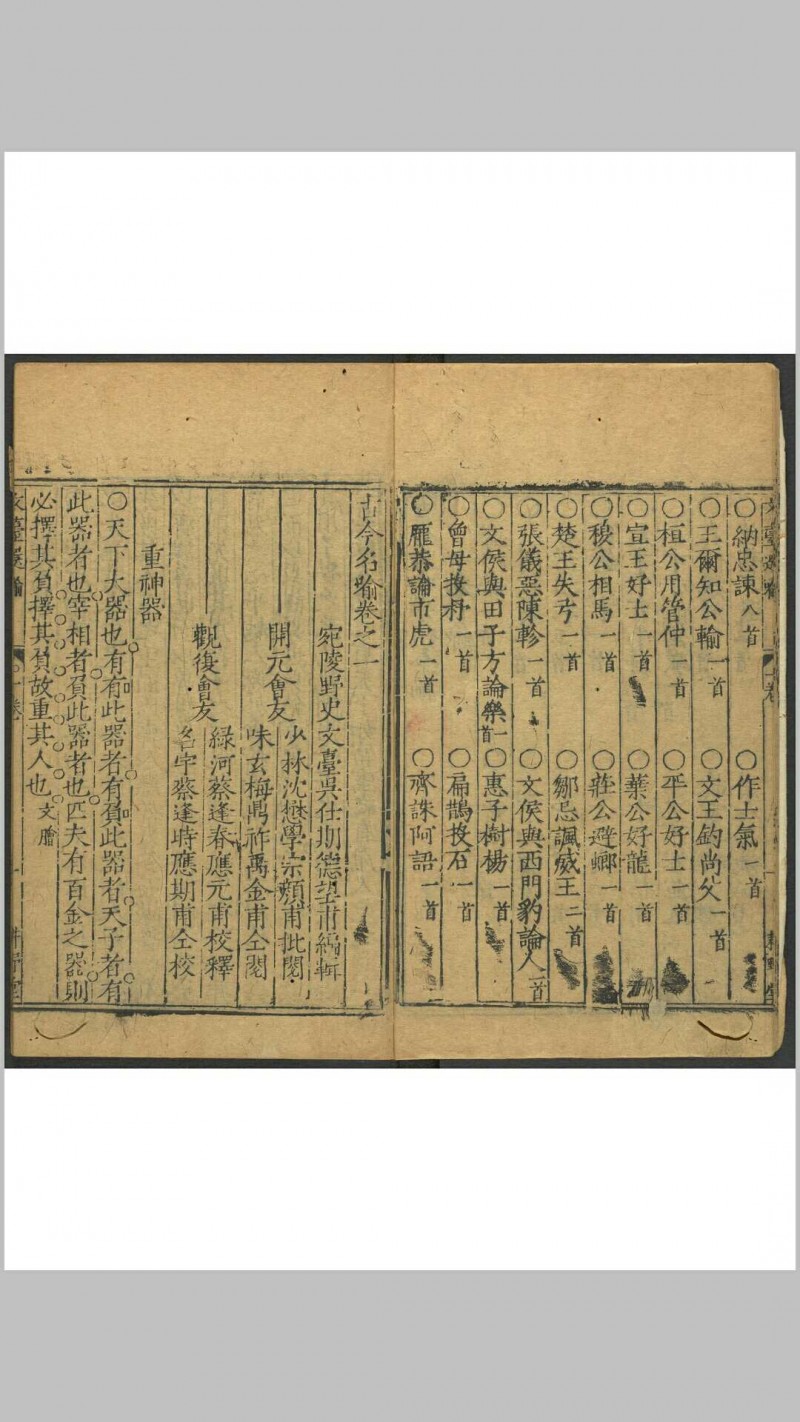 ○納忠諫八首 ○作士氣一首
○王爾知公輸一首 ○文王釣尚父一首
○桓公用管仲一首 ○平公好士一首
○宣王好士一首 ○葉公好龍一首
○穆公相馬一首 ○莊公避螂一首
○楚王失弓一首 ○鄒忌諷威王二首
○張儀惡陳軫一首 ○文侯與西門豹論人一首
○文侯與田子方論樂一首 ○惠子樹楊一首
○曾母投杼一首 ○扁鵲投石一首
○龐恭論市虎一首 ○齊誅阿語一首
古今名喻卷之一
宛陵野史文臺吳仕期德望甫編輯
開元會友
少林沈懋學宗顏甫批閱
味玄梅鼎祚禹金甫仝閱
觀復會友
綠河蔡逢春應元甫校釋
名宇蔡逢時應期甫仝校
重神器
○天下大器也有有此器者有負此器者天子者有
此器者也宰相者負此器者也匹夫有百金之器則
必擇其負擇其負故重其人也文膾